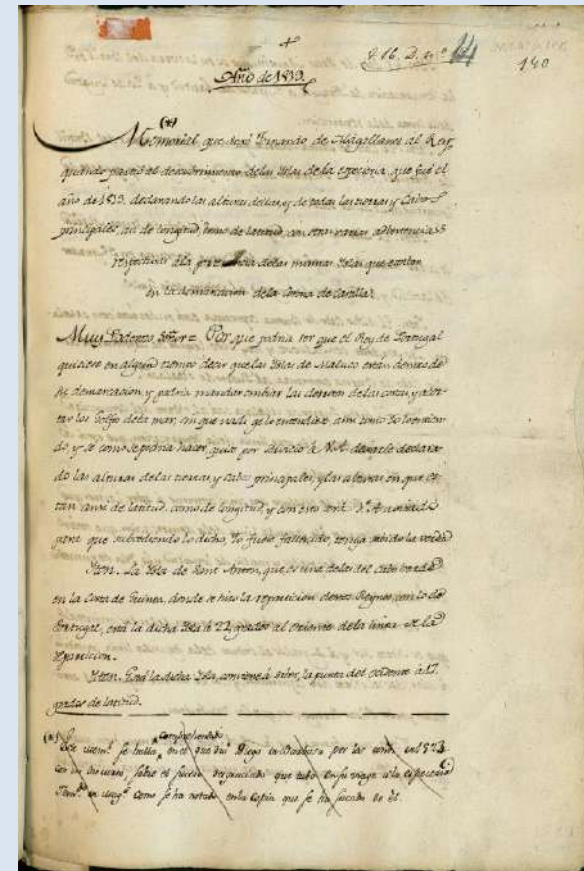 140
Año de 1519.
(*)
Memorial que dexó Fernando de Magallanes al Rey
quando partió al descubrimiento delas Yslas de la especeria, que fué el
año de 1519. declarando las alturas dellas, y de todas las tierras, y Cabos
principales, asi de longitud, como de latitud, con otras varias advertencias
respectivas à la de las mismas Yslas que estan
en la demarcacion dela Corona de Castilla.
Muy Poderoso Señor = Por que podria ser que el Rey de Portugal
quisiese en algun tiempo decir que las Yslas de Maluco están dentro de
su demarcacion, y podria mandar las derrotas de las costas, y acor-
tar los Golfos dela mar, sin que nadie se lo entendiese, ansi como Yo lo entien-
do, y se como se podria hacer, quise por servicio à V. A. dexarle declara-
do las alturas de las tierras, y cabos principales, y las alturas en que es-
tan ansi de latitud, como de longitud, y con esto será V. A. avisado
para que subcediendo lo dicho, Yo fuere fallecido, tenga sabido la verdad
Yten. La Ysla de Sant Anton, que es una delas del cabo verde
en la Costa de Guinea, donde se hizo la reparticion destos Reynos, con lo de
Portugal, está la dicha Ysla à 22 grados al Oriente de la linea de la
reparticion.
Yten. Está la dicha Ysla, conviene à saber, la punta del occidente à 17
grados de latitud.
(*) Este se halla en el que dió Diego Barbosa por los años en 1523
sobre el suceso desgraciado que tubo en su viage à la especeria
como se ha notado en la Copia que se ha sacado de él.